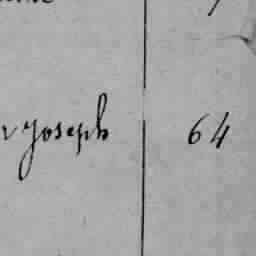 Joseph 64